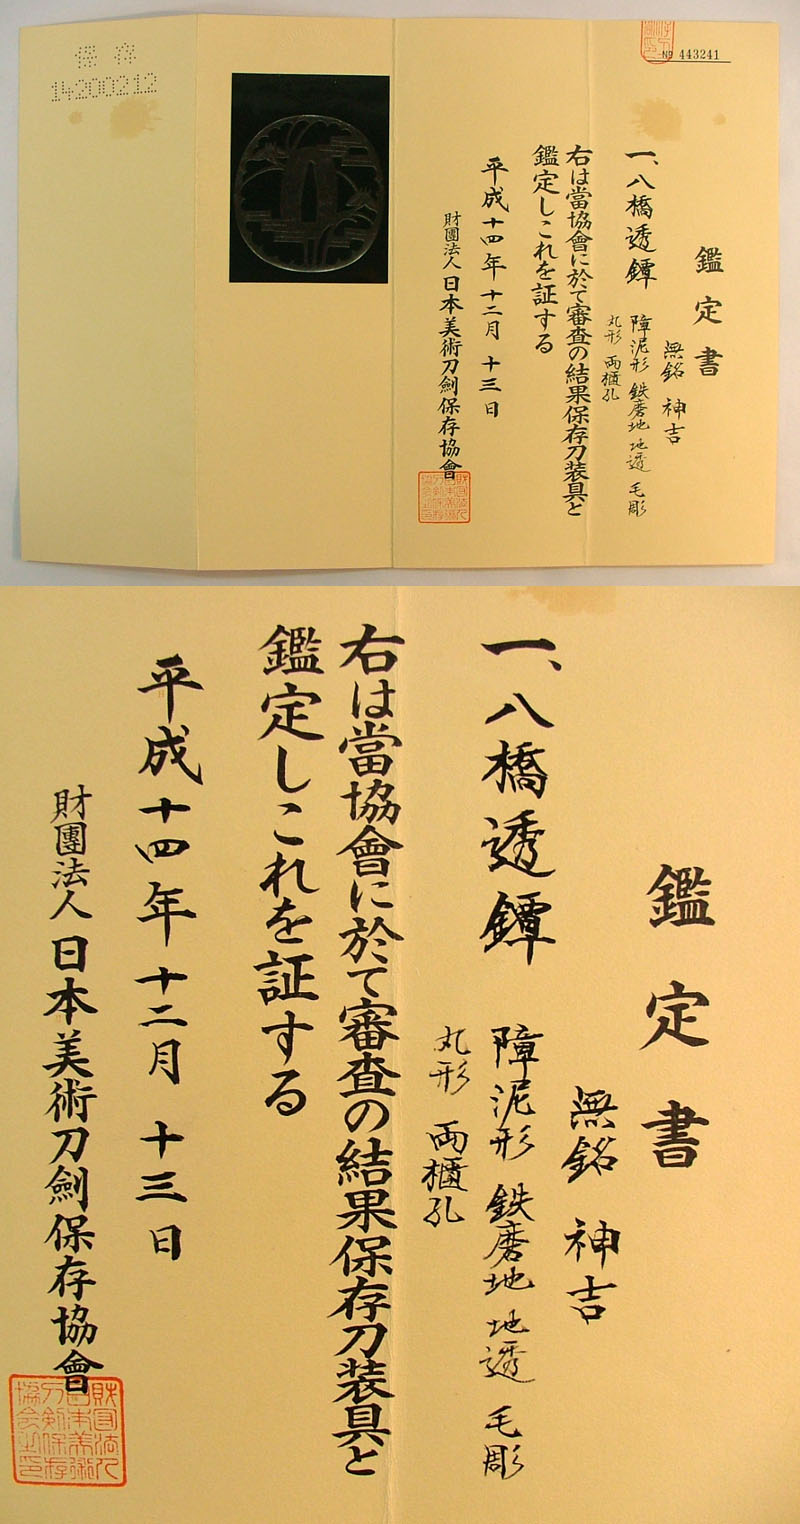 保存
14200212
№ 443241
鑑定書
無銘 神吉
一、八橋透鐔
障泥形 鉄磨地 地透 毛彫
丸形 両櫃孔
右は當協會に於て審査の結果保存刀装具と
鑑定しこれを証する
平成十四年十二月十三日
財團法人日本美術刀劍保存協會
鑑定書
無銘 神吉
一、八橋透鐔
障泥形 鉄磨地 地透 毛彫
丸形 両櫃孔
右は當協會に於て審査の結果保存刀装具と
鑑定しこれを証する
平成十四年十二月十三日
財團法人日本美術刀劍保存協會